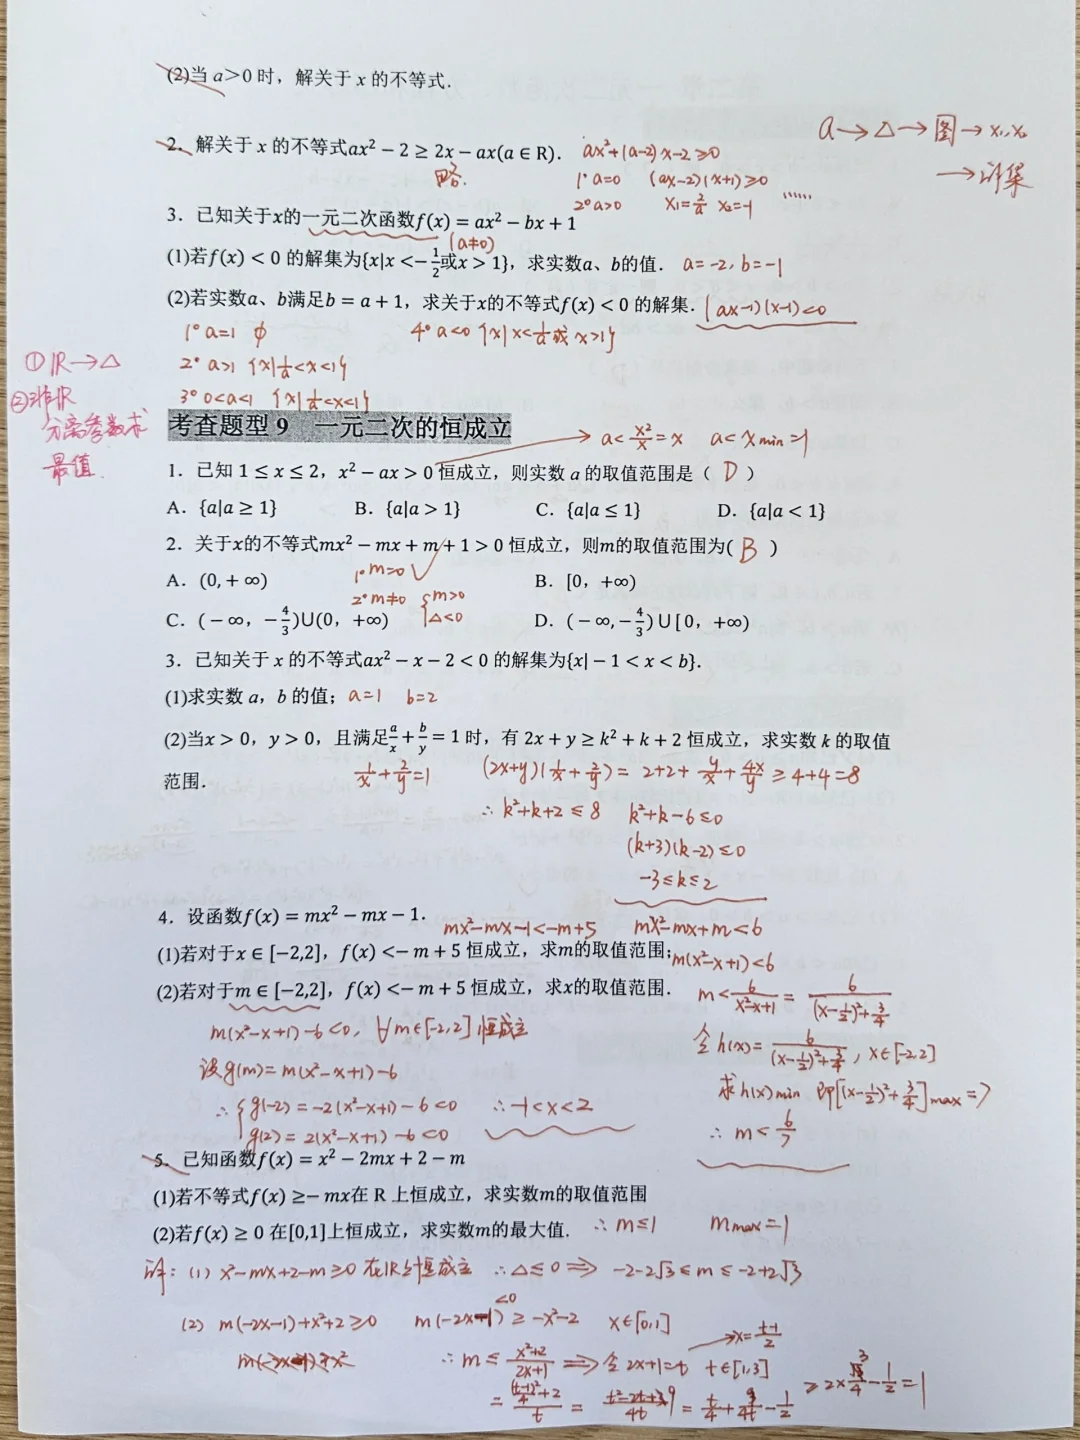 (2)当 a>0 时，解关于 x 的不等式.
a→△→图→x₁,x₂
→解集
2. 解关于 x 的不等式ax² − 2 ≥ 2x − ax(a ∈ R). ax²+(a-2)x-2≥0
略. 1° a=0 (ax-2)(x+1)≥0
2° a>0 x₁=2/a x₂=-1 ……
3. 已知关于x的一元二次函数f(x) = ax² − bx + 1
(a≠0)
(1)若f(x) < 0 的解集为{x|x < −1/2或x > 1}，求实数a、b的值. a=-2, b=-1
(2)若实数a、b满足b = a + 1，求关于x的不等式f(x) < 0 的解集. (ax-1)(x-1)<0
1° a=1 ∅ 4° a<0 {x|x<1/a或x>1}
2° a>1 {x|1/a<x<1}
3° 0<a<1 {x|1/a<x<1}
①R→△
②非R
分离参数求
最值.
考查题型 9 一元二次的恒成立
a<x²/x=x a<x min=1
1. 已知 1 ≤ x ≤ 2，x² − ax > 0 恒成立，则实数 a 的取值范围是（ D ）
A. {a|a ≥ 1} B. {a|a > 1} C. {a|a ≤ 1} D. {a|a < 1}
2. 关于x的不等式mx² − mx + m + 1 > 0 恒成立，则m的取值范围为( B )
A. (0, + ∞) 1° m=0 √ B. [0，+∞)
2° m≠0 {m>0 △<0
C. (− ∞，−4/3)∪(0，+∞) D. (− ∞,−4/3) ∪ [0，+∞)
3. 已知关于 x 的不等式ax² − x − 2 < 0 的解集为{x| − 1 < x < b}.
(1)求实数 a，b 的值; a=1 b=2
(2)当x > 0，y > 0，且满足a/x + b/y = 1 时，有 2x + y ≥ k² + k + 2 恒成立，求实数 k 的取值
范围. 1/x+2/y=1 (2x+y)(1/x+2/y)=2+2+y/x+4x/y≥4+4=8
∴k²+k+2≤8 k²+k-6≤0
(k+3)(k-2)≤0
-3≤k≤2
4. 设函数f(x) = mx² − mx − 1.
mx²-mx-1<-m+5 mx²-mx+m<6
(1)若对于x ∈ [−2,2]，f(x) <− m + 5 恒成立，求m的取值范围; m(x²-x+1)<6
(2)若对于m ∈ [−2,2]，f(x) <− m + 5 恒成立，求x的取值范围. m<6/(x²-x+1)=6/((x-1/2)²+3/4)
m(x²-x+1)-6<0, ∀m∈[-2,2]恒成立
令h(x)=6/((x-1/2)²+3/4), x∈[-2,2]
设g(m)=m(x²-x+1)-6
求h(x)min 即[(x-1/2)²+3/4]max=7
∴{g(-2)=-2(x²-x+1)-6<0 ∴-1<x<2
g(2)=2(x²-x+1)-6<0
∴m<6/7
5. 已知函数f(x) = x² − 2mx + 2 − m
(1)若不等式f(x) ≥− mx在 R 上恒成立，求实数m的取值范围
(2)若f(x) ≥ 0 在[0,1]上恒成立，求实数m的最大值. ∴m≤1 m max=1
解：(1) x²-mx+2-m≥0在R上恒成立 ∴△≤0⇒ -2-2√3≤m≤-2+2√3
(2) m(-2x-1)+x²+2≥0 m(-2x-1)≥-x²-2 x∈[0,1]
<0
∴m≤(x²+2)/(2x+1)⇒令2x+1=t t∈[1,3] →x=(t-1)/2
=((t-1)²/4+2)/t=(t²-2t+9)/4t=t/4+9/4t-1/2≥2×3/4-1/2=1